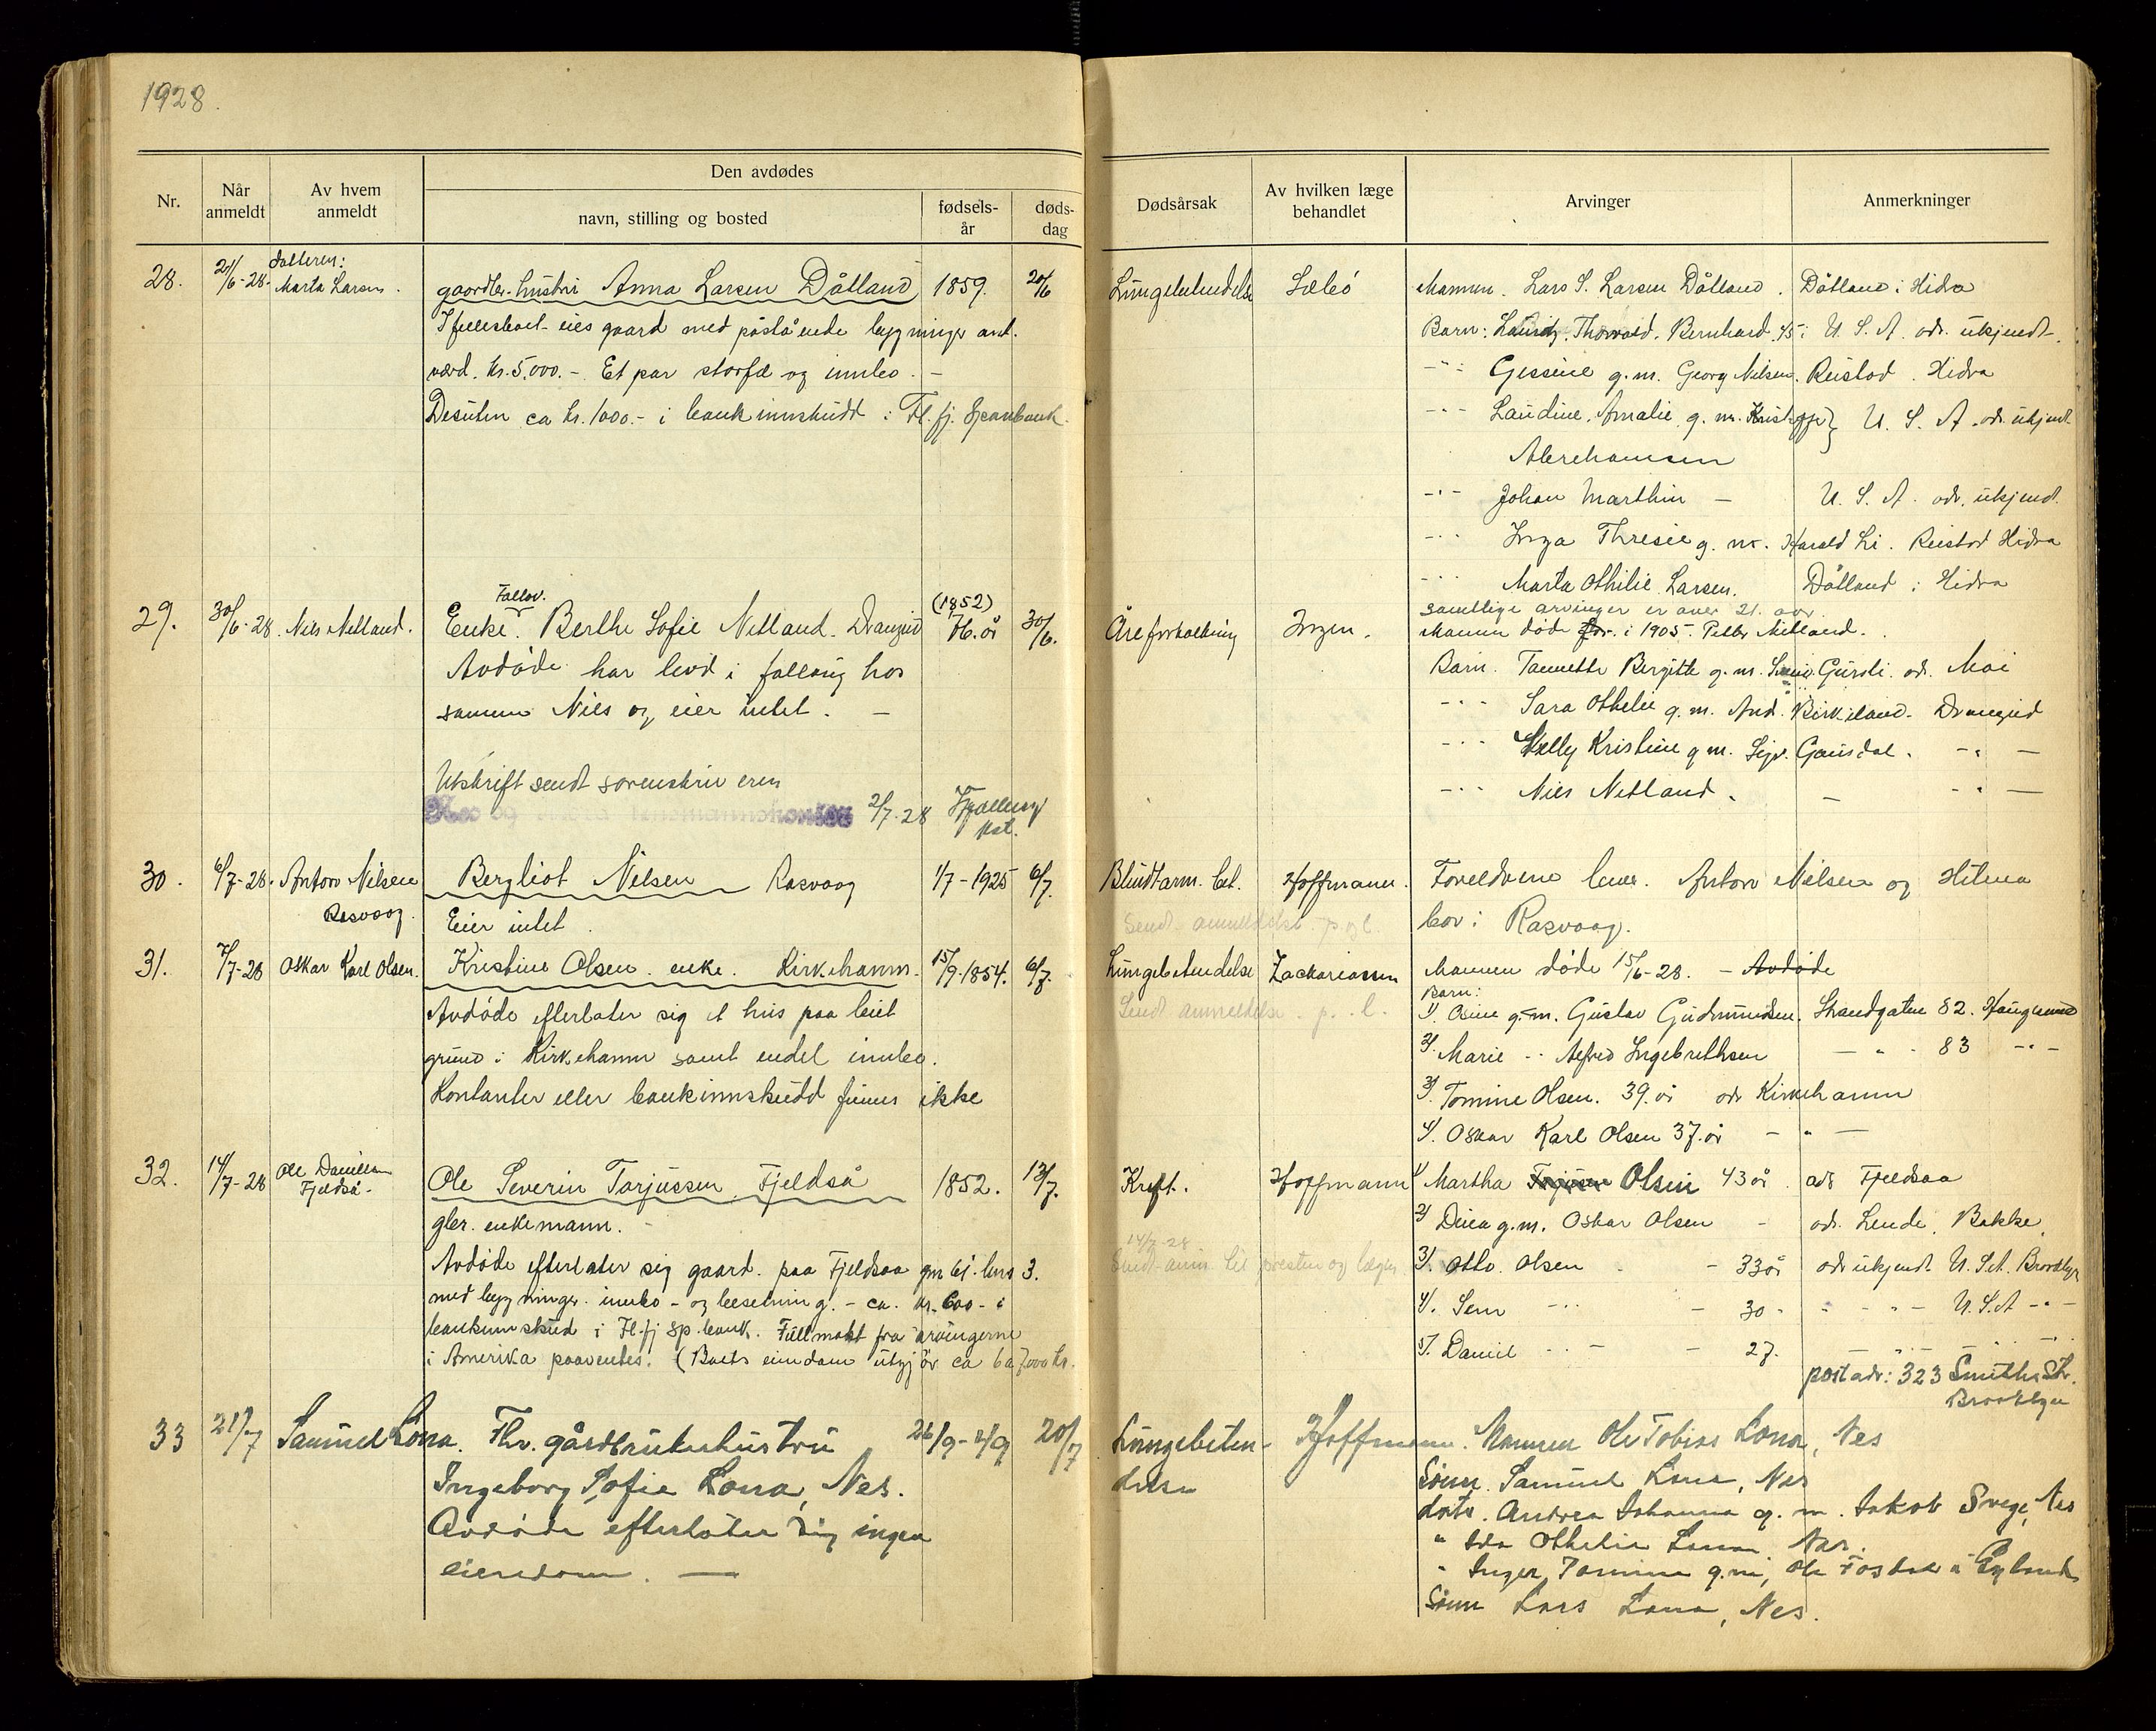 1928.
Den avdødes
Nr.
Når anmeldt
Av hvem anmeldt
navn, stilling og bosted
fødsels-år
døds-dag
Dødsårsak
Av hvilken læge behandlet
Arvinger
Anmerkninger
28. 21/6-28. datteren: Marta Larsen. gaardbr. hustru Anna Larsen Dåtland 1859. 20/6 Lungebetendelse Mannen. Lars S. Larsen Dåtland. Dåtland i Hidra
I fellesboet eies gaard med påstående bygninger ant.
værd. kr. 5.000.- Et par storfæ og innbo. -
Desuten ca kr. 1000.- i bankinnskudd i Fl.fj. Sparebank.
Barn: Lauritz Thorvald Bernhard 45 i U.S.A. adr. ukjendt.
-"- Gessine g.m. Georg Nilsen. Reistad. Hidra
-"- Laudine Amalie g.m. Kristoffer U.S.A. adr. ukjendt.
Abrehamsen
-"- Johan Marthin - U.S.A. adr. ukjendt.
-"- Inga Thresie g.m. Harald Li. Reistad Hidra
-"- Marta Othilie Larsen. Dåtland i Hidra
samtlige arvinger er over 21. aar
29. 30/6-28. Nils Netland. Enke Berthe Sofie Netland. Drangeid (1852) 76. år 30/6. Åreforkalkning Ingen. Mannen døde i 1905. Peder Netland.
Avdøde har levd i fallaug hos
sønnen Nils og eier intet. -
Barn. Tannette Bergitte g.m. Gursli. adr. Moi
-"- Sara Othelie g.m. And. Birkeland. Drangeid
-"- Kristine g.m. Sigv. -"-
-"- Nils Netland. - -"-
Utskrift sendt sorenskriveren
2/7.28
30. 6/7-28. Anton Nilsen Rasvaag. Bergliot Nilsen Rasvaag 1/7-1925 6/7. Blindtarm. bet. Hoffmann. Foreldrene lever. Anton Nilsen og Hilma
Eier intet.
Sendt anmeldelse
bor i Rasvaag.
31. 7/7-28 Oskar Karl Olsen. Kristine Olsen. enke. Kirkehamn. 15/9-1854. 6/7. Lungebetendelse Zackariassen Mannen døde 15/6-28. - Avdøde
Sendt anmeldelse
Barn:
Avdøde efterlater sig et hus paa leiet
grund i Kirkehamn samt endel innbo.
Kontanter eller bankinnskudd finnes ikke
1). Osine g.m. Gustav Gudmundsen. Strandgaten 82. Haugesund
2). Marie -"- Alfred Ingebrethsen -"- 83 -"-
3). Tomine Olsen. 39. år adr Kirkehamn
4). Oskar Karl Olsen 37. år -"-
32. 14/7-28 Ole Danielsen Fjeldså. Ole Severin Tarjussen Fjeldså 1852. 13/7. Kreft. Hoffmann 1) Martha Olsen 43 år. adr Fjeldsaa
gbr. enkemann.
2) Dina g.m. Oskar Olsen - adr. Lende. Bakke
14/7-28
Sendt anm. til presten og lægen
Avdøde efterlater sig gaard paa Fjeldsaa gnr 61. brnr 3.
med bygninger. innbo - og besetning. - ca. kr. 600.- i
bankinnskud i Fl.fj. sp.bank. Fullmakt fra arvingerne
i Amerika paaventes. (Boets eiendom utgjør ca 6 a 7000 kr.
3). Otto. Olsen - 33 år adr ukjendt. U.S.A. Brooklyn
4). Sem -"- - 30 - -"- U.S.A -"-
5). Daniel -"- - 27. -"-
postadr: 323 Smiths Str. Brooklyn
33 21/7 Samuel Lona. Fhv. gårdbrukerhustru 26/9- 20/7 Lungebetendelse Hoffmann. Mannen Ole Tobias Lona, Nes
Ingeborg Sofie Lona, Nes.
Avdøde efterlater sig ingen
eiendom. -
Sønn. Samuel Lona, Nes
datr. Andrea Johanna g.m. Jakob Svege, Nes
" Ida Othelia Lona. Nes.
" Inger Tomine g.m. Ole Fosdal i Gyland
Sønn Lars Lona, Nes.